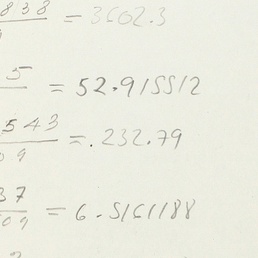 838 = 3602.3
9
5 = 52.915512
543 = .232.79
09
37 = 6.5161188
509